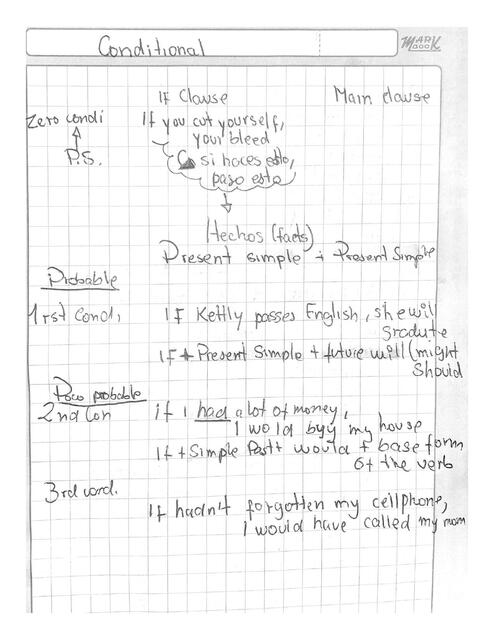 Conditional
MARK
BOOK
If Clause Main clause
Zero condi If you cut yourself,
your bleed
P.S. si haces esto,
paso esto
Hechos (facts)
Present simple + Present Simple
Probable
1rst Condi If Kettly passes English, she will
gradute
If + Present Simple + future will (might
Should
Poco probable
2nd Con if I had a lot of money,
I would byy my house
If + Simple Past + would + base form
of the verb
3rd cord. If hadn't forgotten my cellphone,
I would have called my mom